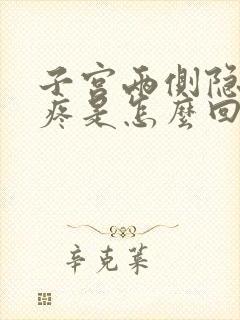 子宫两侧隐
疼是怎么回
辛克莱